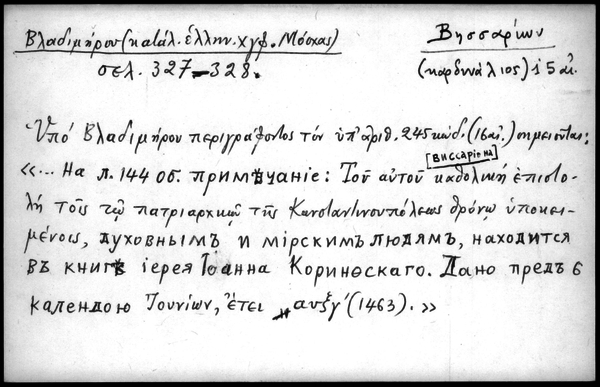 Βλαδιμήρου (κατάλ. ἑλλην. χγφ. Μόσχας)
σελ. 327-328.
Βησσαρίων
(καρδινάλιος) 15 αἰ.
Ὑπό Βλαδιμήρου περιγράφοντος τόν ὑπ' ἀριθ. 245 κώδ. (16 αἰ.) σημειοῦται:
«... На л. 144 об. примѣчаніе: Τοῦ αὐτοῦ [виссаріона] καθολική ἐπιστο-
λή τοῖς τῷ πατριαρχικῷ τῆς Κωνσταντινουπόλεως θρόνῳ ὑποκει-
μένοις, духовнымъ и мірскимъ людямъ, находится
въ книгѣ іерея Іоанна Коринѳскаго. Дано предъ 6
календою Ἰουνίων, ἔτει „αυξγ' (1463).»